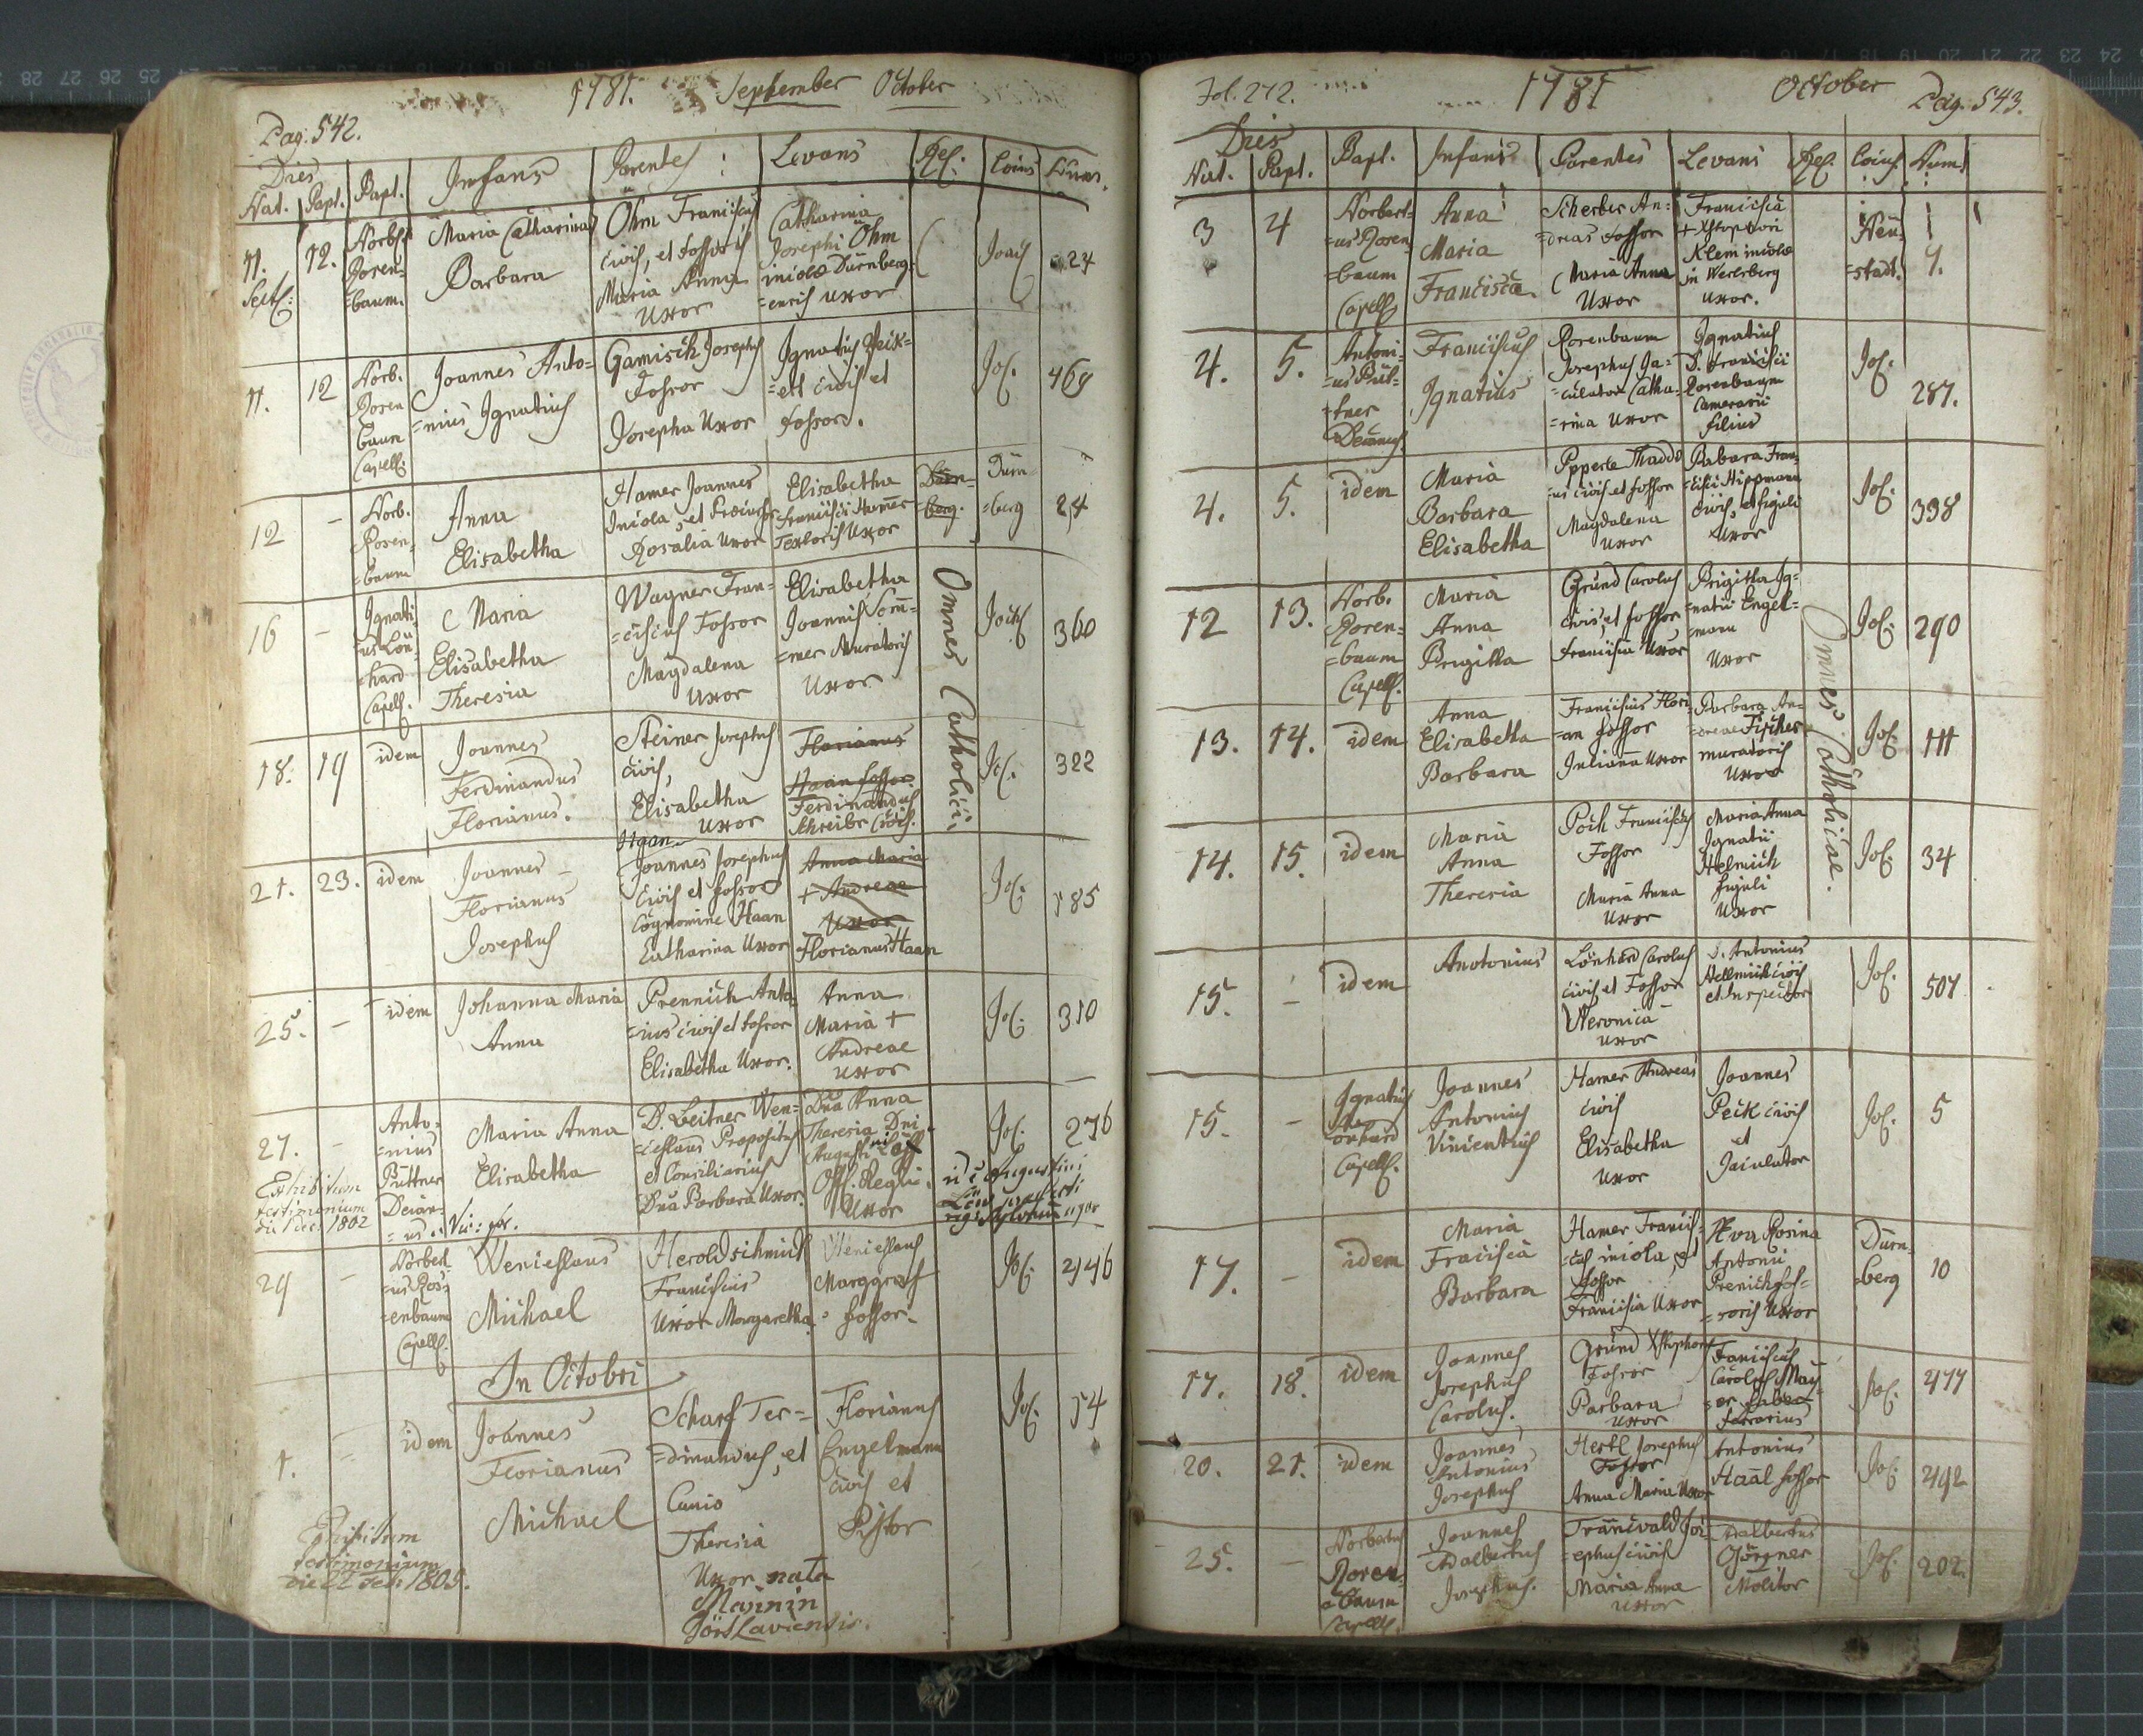 Pag: 542.
1781. September October
Dies
Nat. Papt. Papt. Infans Parentes: Levans Rel: Locus Num.
11. Sept: 12. Norb: Rosen=
=baum.
Maria Catharina
Barbara
Ohm Franciscus
civis, et fossoris
Maria Anna
Uxor
Catharina
Josephi Ohm
incolae Dürnberg=
=ensis uxor
Joach 24
11. 12 Norb.
Rosen
baum
Capell:
Joannes Anto=
=nius Ignatius
Gamisch Josephus
Fossor
Josepha Uxor
Ignatius
civis et
fossor.
Jos. 469
12 – Norb.
Rosen=
=baum
Anna
Elisabetha
Hamer Joannes
Incola, et
Rosalia Uxor
Elisabetha
Francisci Hamer
Textoris Uxor
Dürn=
=berg.
Dürn=
=berg 24
16 – Ignati=
=us Lön=
=hard
Capell.
Maria
Elisabetha
Theresia
Wagner Fran=
=ciscus Fossor
Magdalena
Uxor
Elisabetha
Joannis Som=
=mer Muratoris
Uxor
Omnes Catholici
360
18. 19 idem Joannes
Ferdinandus
Florianus.
Steiner Josephus
civis,
Elisabetha
Uxor
Florianus
Haan fossor
Ferdinandus
Schreiber civis.
Jos. 322
21. 23. idem Joannes
Florianus
Josephus
Haan
Joannes Josephus
civis et fossor
cognomine Haan
Catharina Uxor
Anna Maria
+ Andreae
Uxor
Florianus Haan
Jos. 185
25. – idem Johanna Maria
Anna
Prennich Anto=
=nius civis et fossor
Elisabetha Uxor.
Anna
Maria +
Andreae
uxor
Jos. 310
27. – Anto=
=nius
Püttner
Decan=
=us
Maria Anna
Elisabetha
D. Leitner Wen=
=ceslaus Propositus
et Consiliarius
Dña Barbara Uxor.
Dña Anna
Theresia Dni
Augusti
Off. Regii
Uxor
Jos: 276
Exhibitum
testimonium
die 1 Dec: 1802
29 – Norbert=
=us Ros=
=enbaum
Capell.
Wenceslaus
Michael
Heroldschmidt
Franciscus
Uxor Margaretha
Wenceslaus
Marggraf
fossor.
Jos. 246
In Octobri
1. – idem Joannes
Florianus
Michael
Scharf Fer=
=dinandus, et
Theresia
Uxor nata
Florianus
Engelmann
civis et
Pistor
Jos. 54
Exhibitum
testimonium
die 22 Feb 1805.
Fol. 272. 1781 October Pag: 543.
Dies
Nat. Papt. Bapt. Infans Parentes Levans Rel. Locus Num.
3 4 Norbert=
=us Rosen
=baum
Capell
Anna
Maria
Francisca
Scherber An=
=dreas fossor
Maria Anna
Uxor
Francisca
+ Xstophori
Klem incolae
in Werlsberg
uxor.
Neu=
=stadt. 7.
4. 5. Antoni=
=us Püt=
=tner
Decanus
Franciscus
Ignatius
Rosenbaum
Josephus Ja=
=culator Catha=
=rina Uxor
Ignatius
D. Francisci
Rosenbaum
Camerarii
filius
Jos. 287.
4. 5. idem Maria
Barbara
Elisabetha
Pepperle Thaddä=
=us civis et fossor
Magdalena
Uxor
Babara Fran=
=cisci Hippmann
civis, et figuli
Uxor
Jos. 338
12 13. Norb.
Rosen=
=baum
Capell.
Maria
Anna
Brigitta
Gründ Carolus
civis, et fossor
Francisca Uxor
Brigitta Ig=
=natii Engel=
=mann
Uxor
Omnes Catholicae.
Jos. 290
13. 14. idem Anna
Elisabetha
Barbara
Franciscus Flori=
=an fossor
Julianna Uxor
Barbara An=
=dreae Fischer
muratoris
Uxor
Jos: 111
14. 15. idem Maria
Anna
Theresia
Pöck Franciscus
Fossor
Maria Anna
Uxor
Maria Anna
Ignatii
Helmich
figuli
Uxor
Jos. 34
15. – idem Anotonius Lönhard Carolus
civis, et Fossor
Veronica
uxor
D. Antonius
Hellmich civis
et Inspector
Jos. 507
15. – Ignatius
Leonhard
Capell.
Joannes
Antonius
Vincentius
Hamer Andreas
civis
Elisabetha
uxor
Joannes
Peck civis
et
Jaculator
Jos. 5
17. – idem Maria
Fracisca
Barbara
Hamer Francis=
=cus incola, et
fossor
Francisca Uxor
Eva Rosina
Antonii
Prenich fos=
=soris Uxor
Dürn=
=berg 10
17. 18. idem Joannes
Josephus
Carolus.
Gründ Xstophorus
Fossor
Barbara
uxor
Franciscus
Carolus May=
=er faber
ferrarius
Jos. 477
20. 21. idem Joannes
Antonius
Josephus
Hertl Josephus
Fossor
Anna Maria Uxor
Antonius
Haal fossor
Jos. 492
25. – Norbertus
Rosen=
=baum
Capell.
Joannes
Adalbertus
Josephus.
Franckwald Jos=
=ephus civis
Maria Anna
uxor
Adalbertus
Görgner
Molitor
Jos. 202.